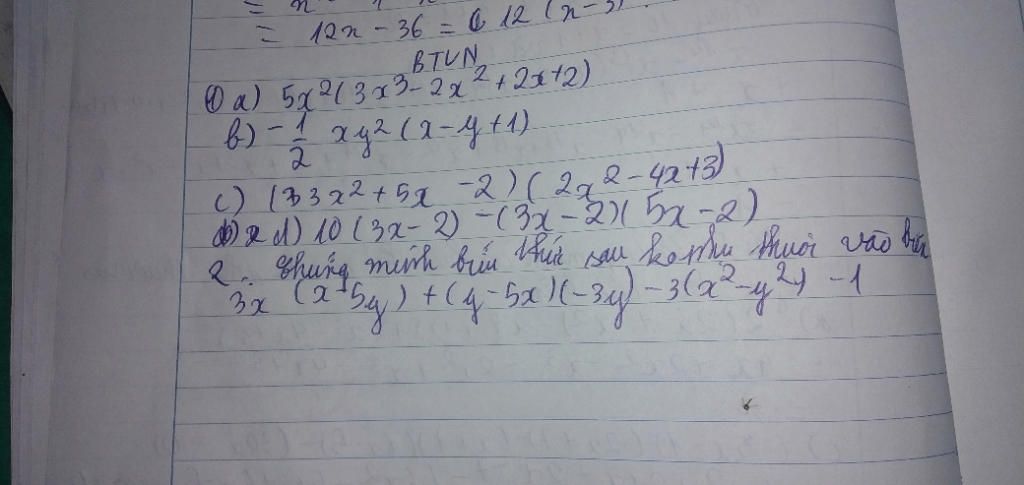 = 12x - 36 = 12 (x-3)
BTVN
1) a) 5x²(3x³ - 2x² + 2x + 2)
b) -1/2 xy² (x - y + 1)
c) (3x² + 5x - 2)(2x² - 4x + 3)
d) 10 (3x - 2) - (3x - 2)(5x - 2)
2. chứng minh biểu thức sau ko phụ thuộc vào biến
3x (x - 5y) + (y - 5x)(-3y) - 3(x² - y²) - 1